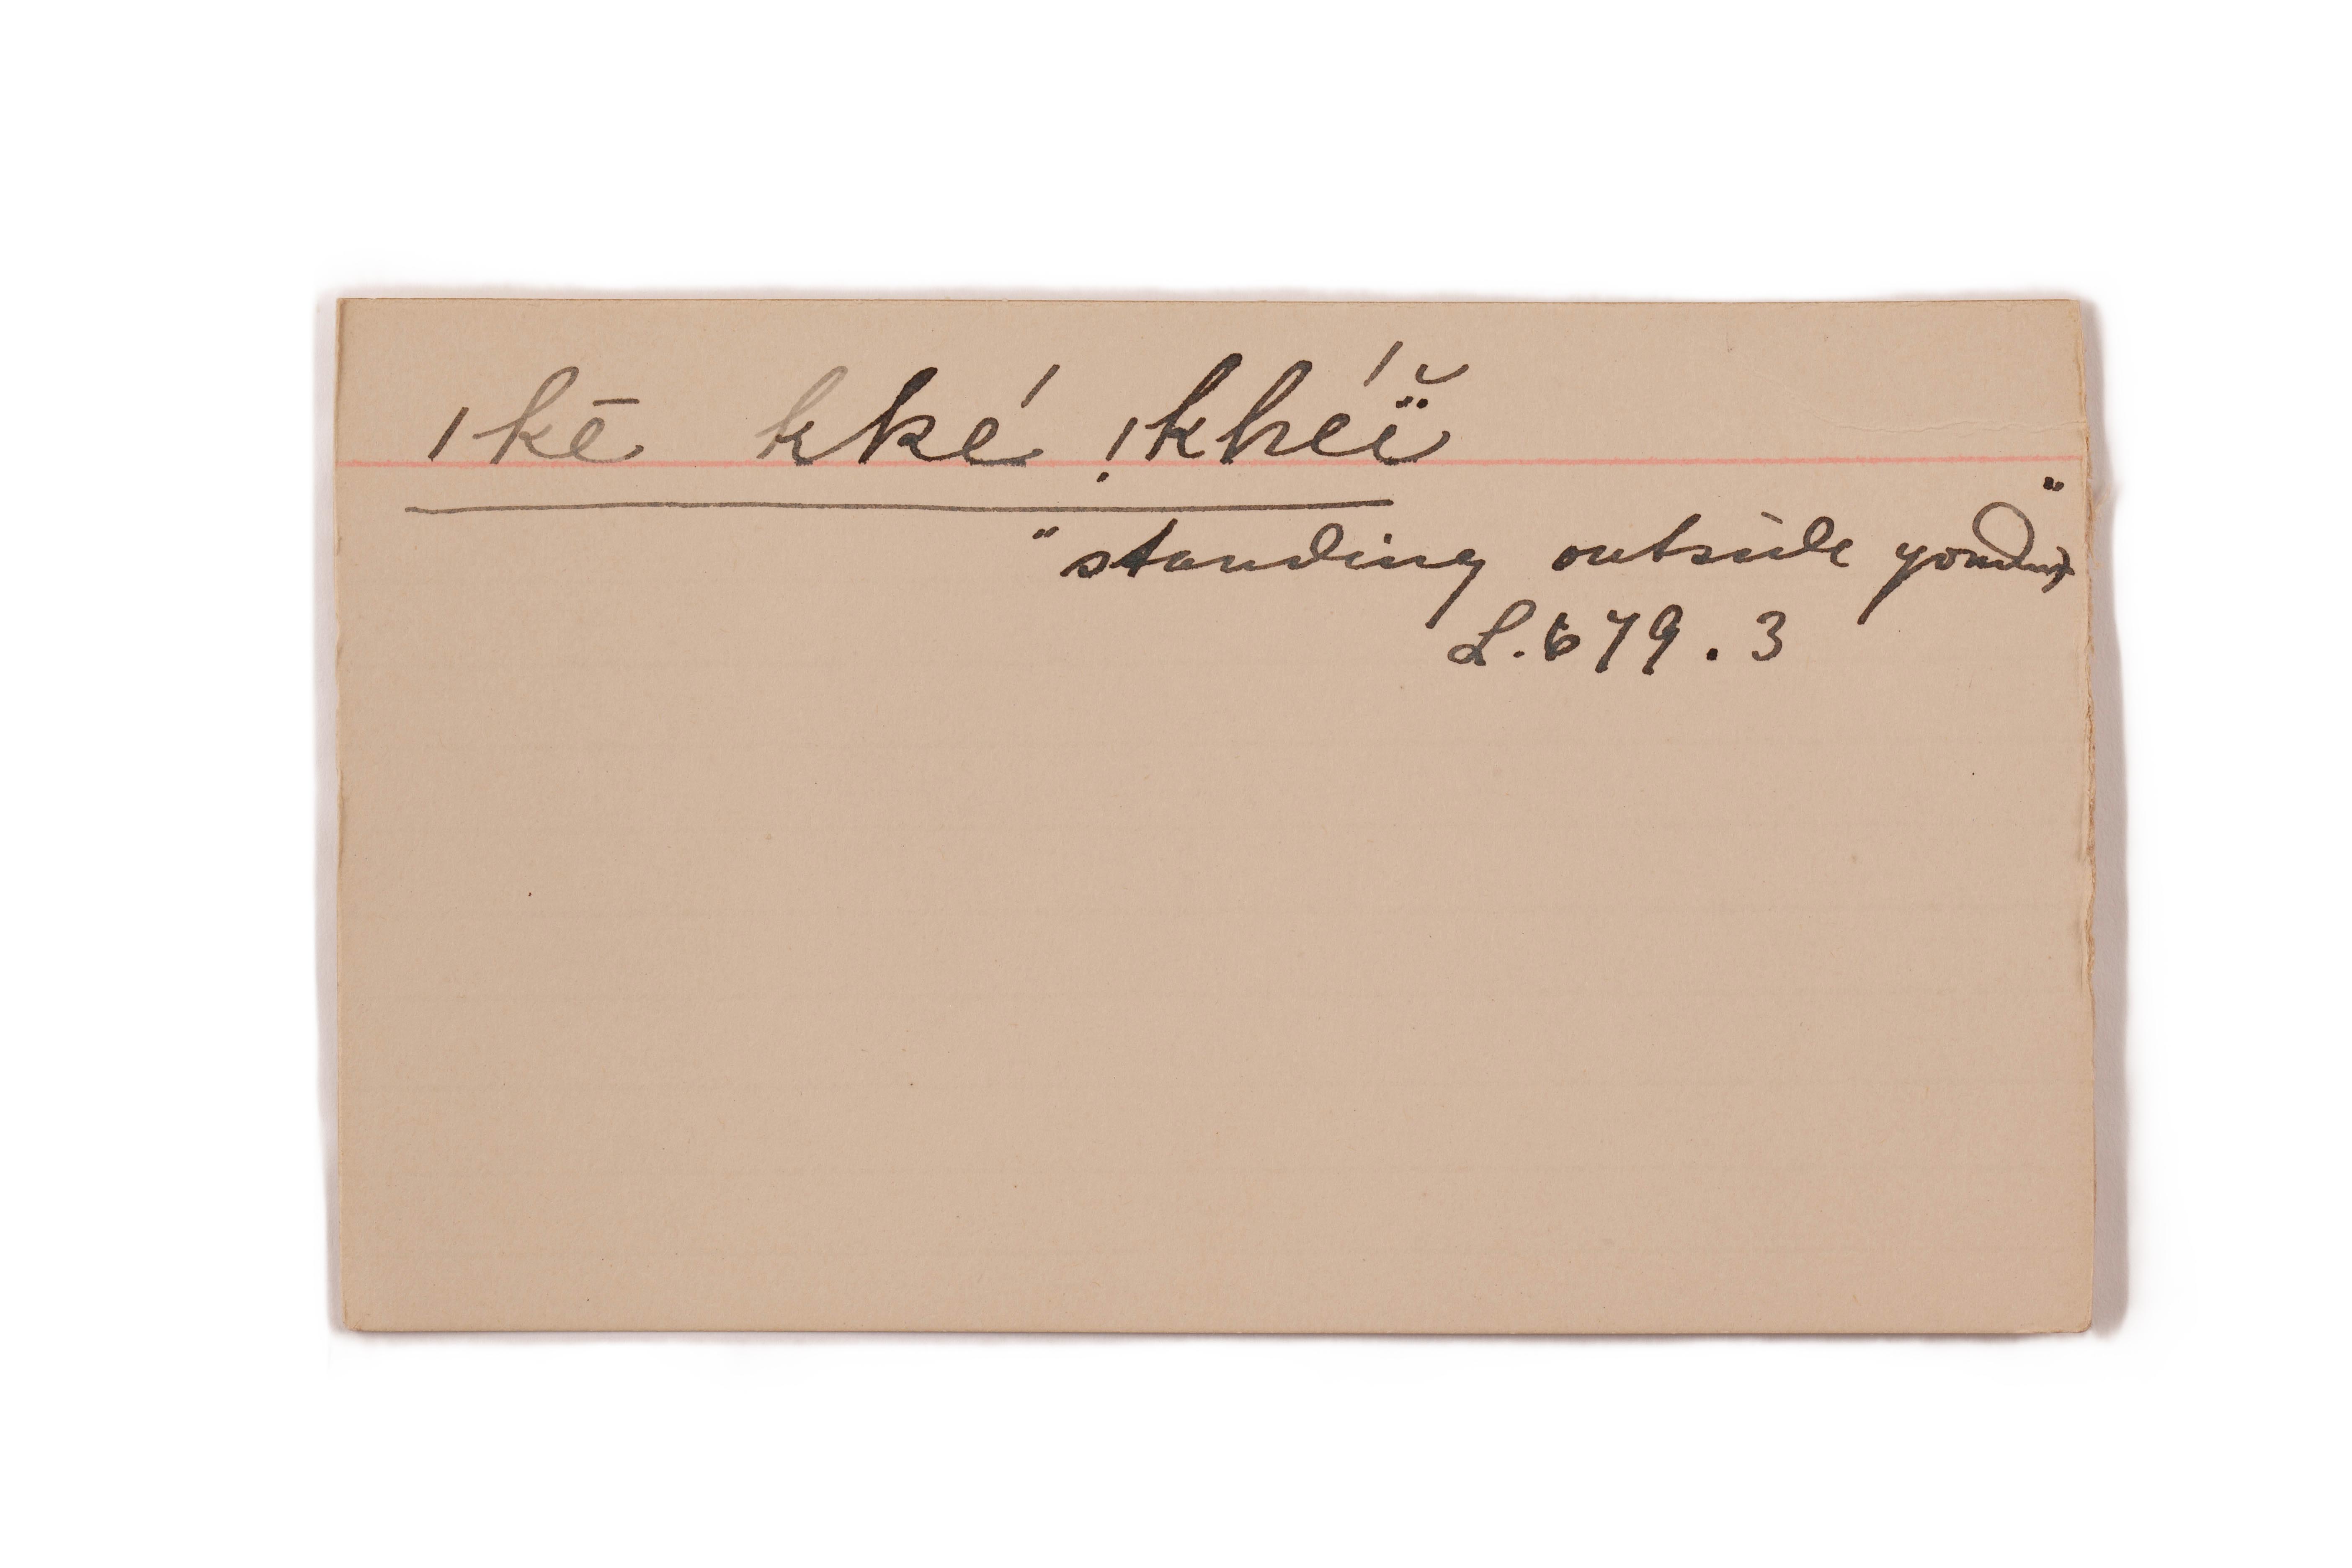 ǀkē kké ǃkhéǐ̈
"standing outside yonder"
L.679.3